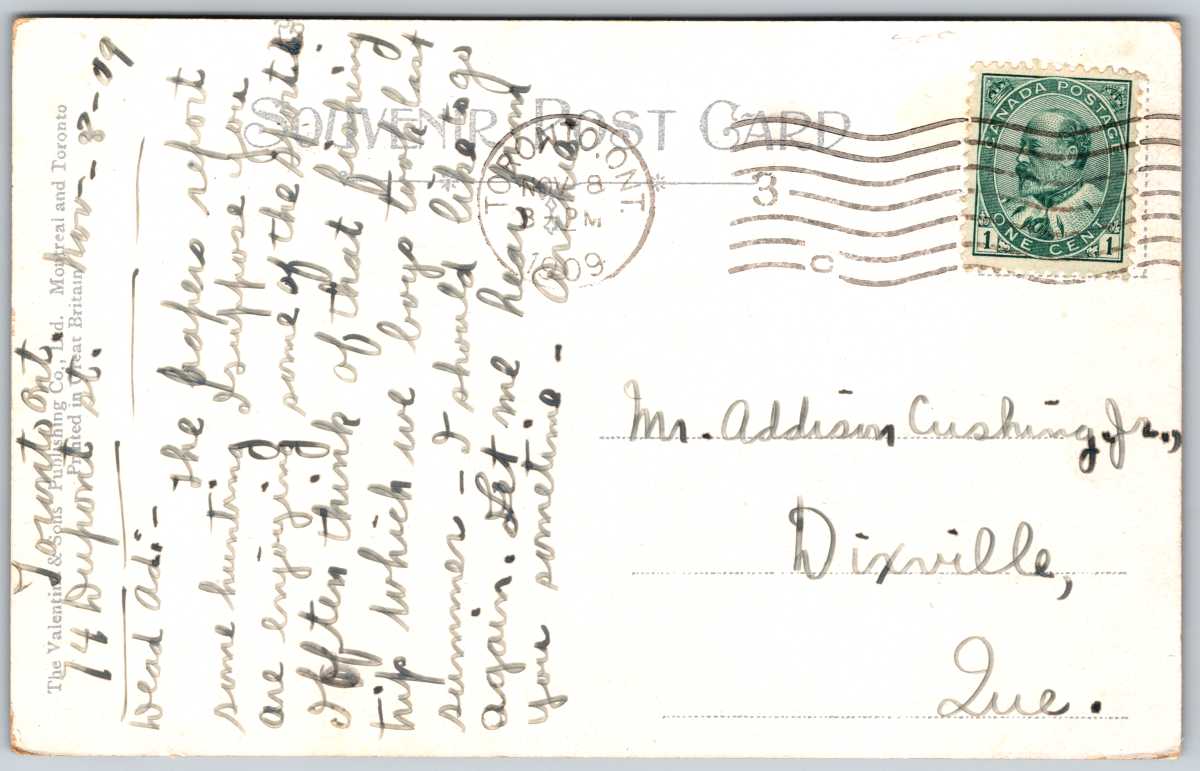 SOUVENIR POST CARD
TORONTO, ONT.
NOV 8
8 PM
1909
3
C
CANADA POSTAGE
ONE CENT
1 1
Mr. Addison Cushing, Jr.,
Dixville,
Que.
The Valentine & Sons Publishing Co., Ltd. Montreal and Toronto
Printed in Great Britain
Toronto Ont.
74 Dupont St. Nov - 8 - 09
Dead Adi. -
The papers report
some hunting I suppose you
are enjoying some of the sports.
I often think of that fishing
trip which we boys took last
summer - I should like to go
again. Let me hear from
you sometime -